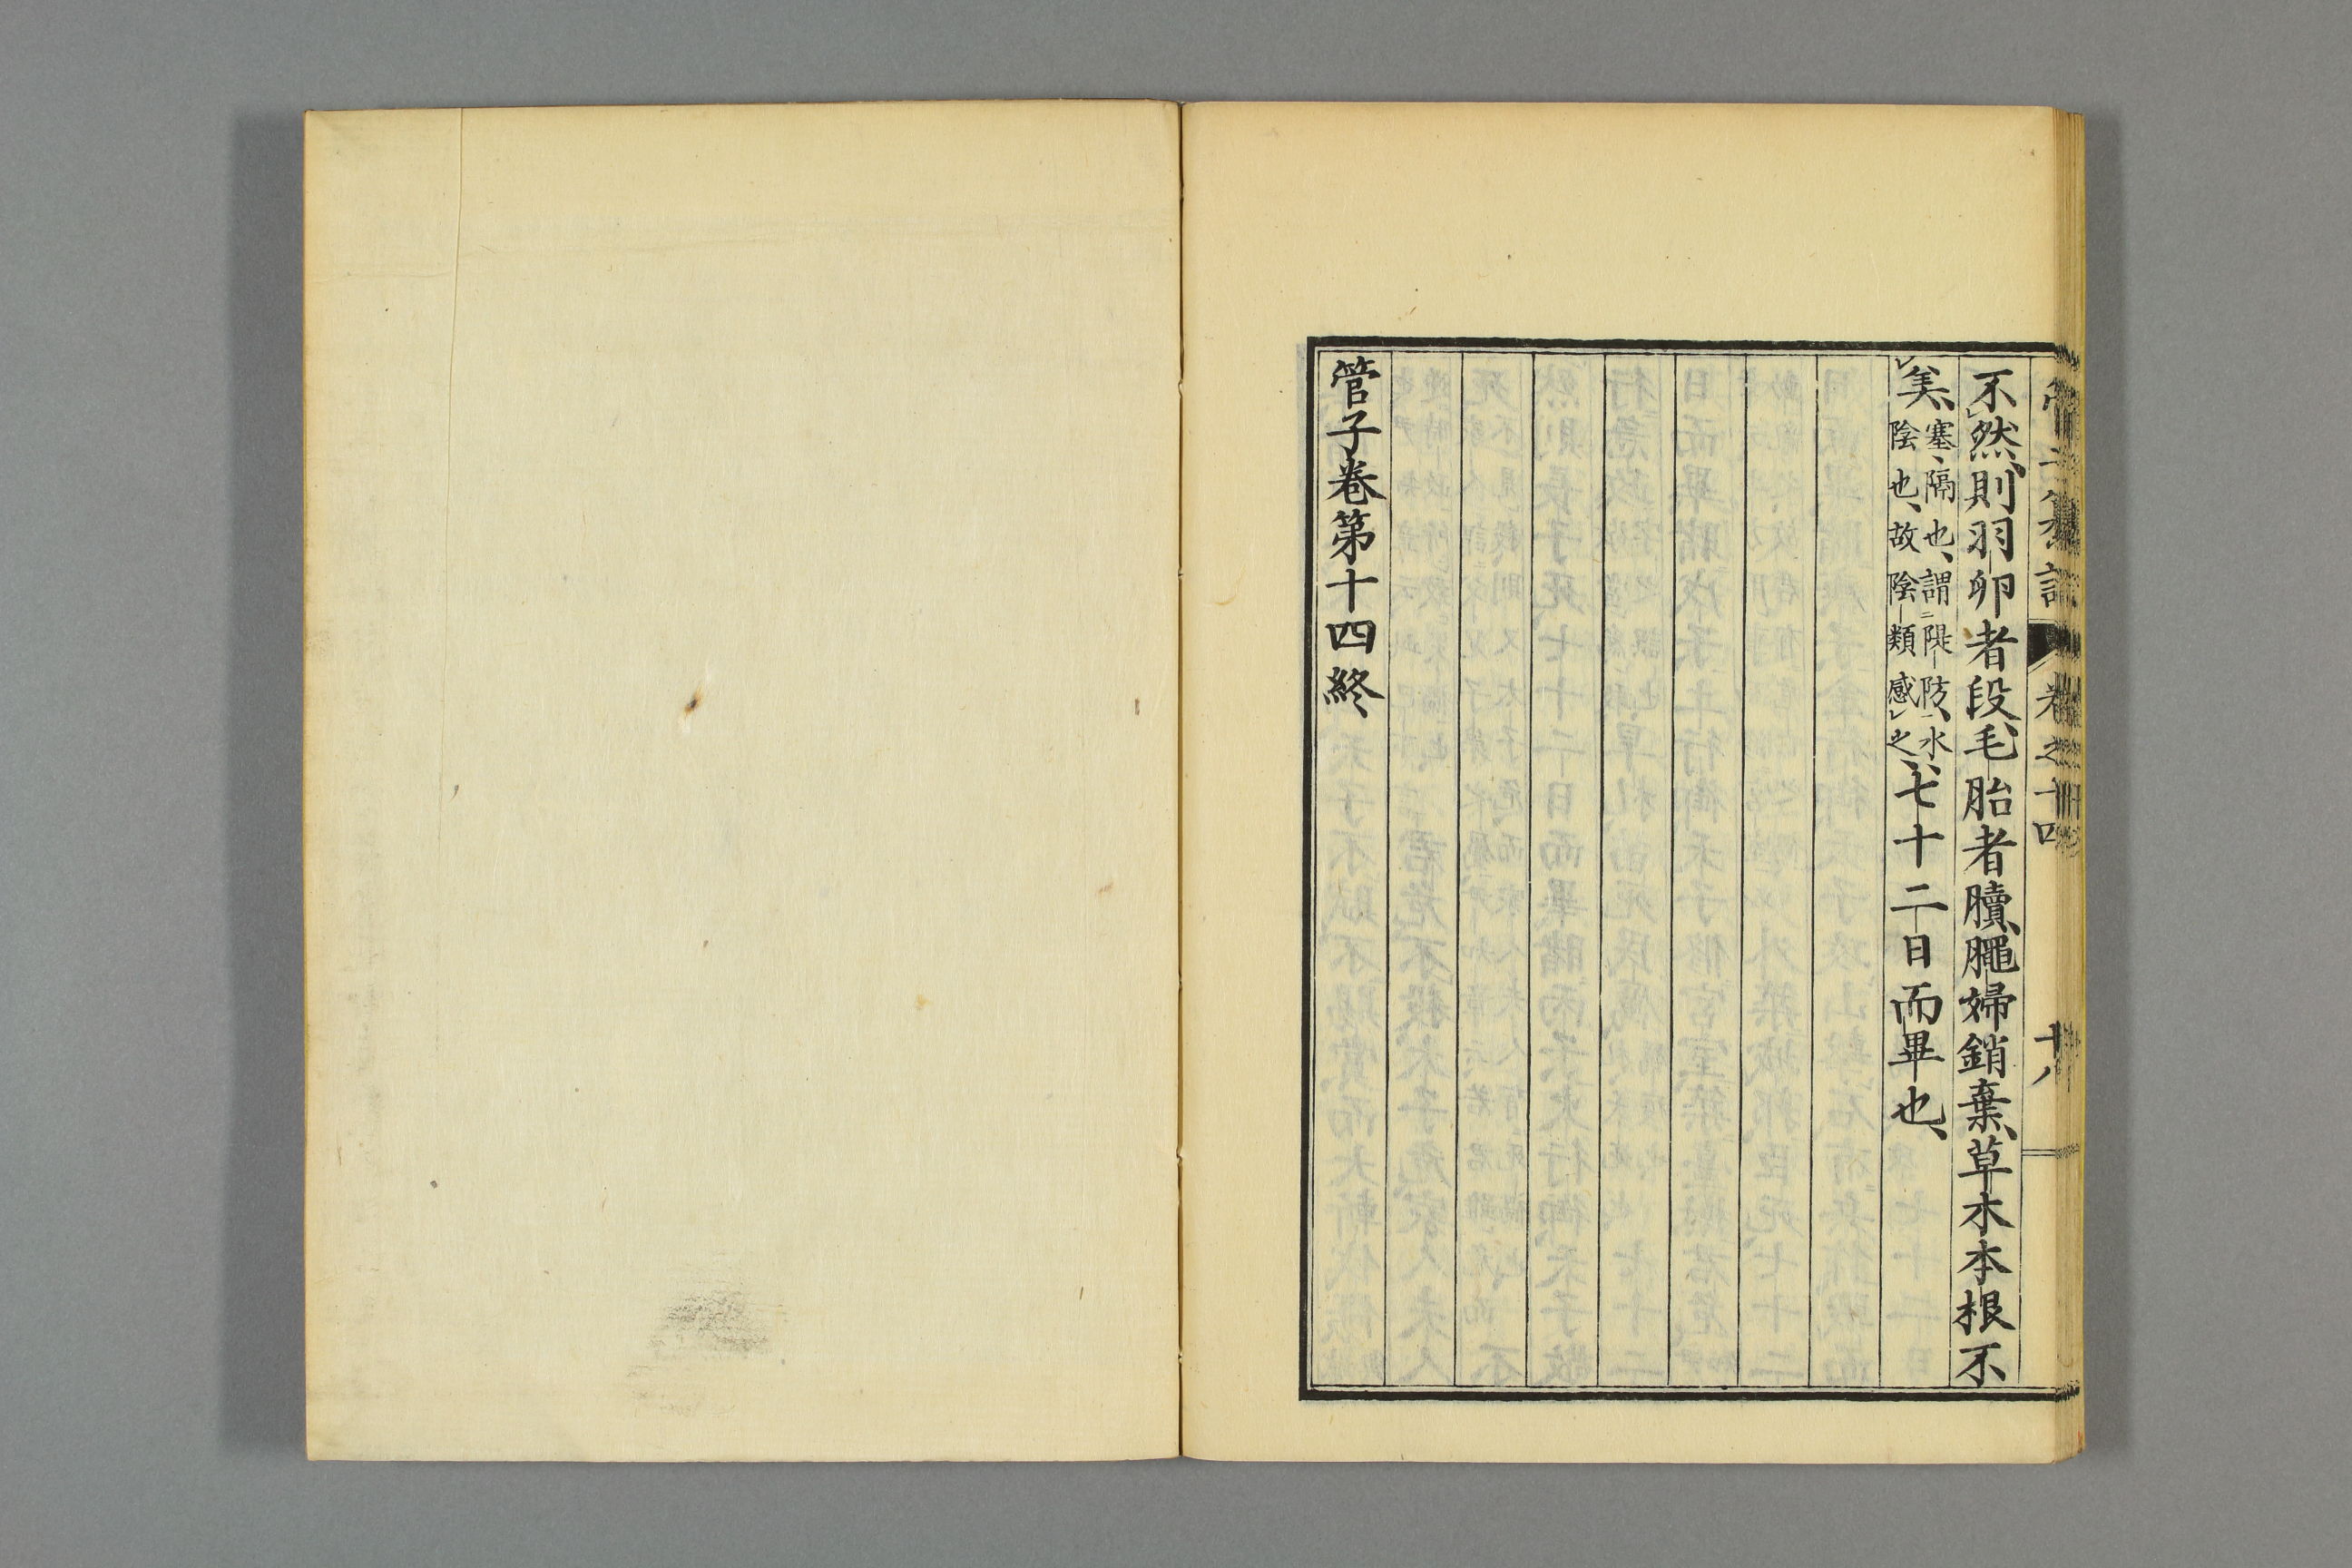 不然、則羽卵者段、毛胎者贕、䐈婦銷棄、草木本根不
美、塞、隔也、謂隄防、水、
陰也、故陰類感之、七十二日而畢也、
管子卷第十四終
卷之十四
十八